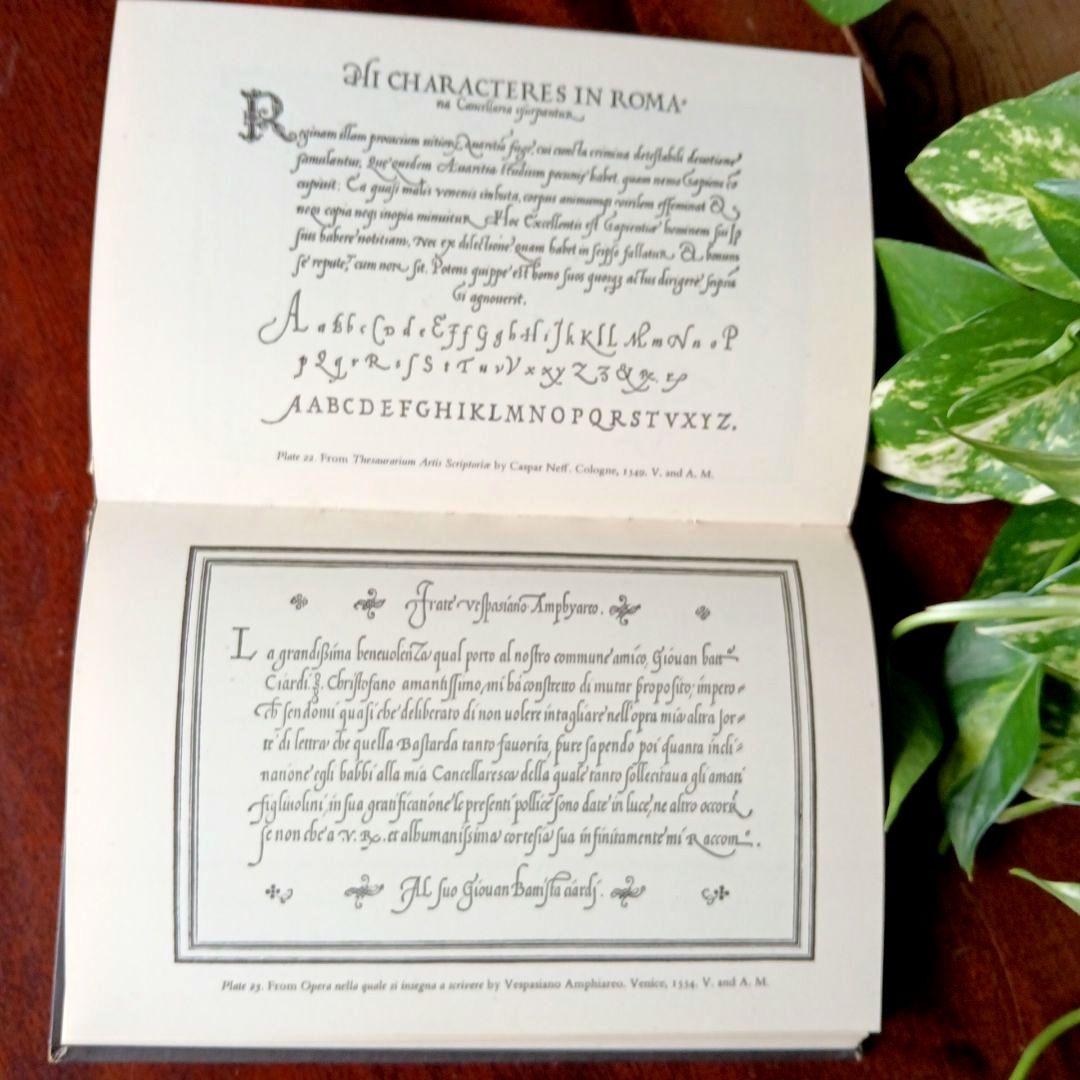 HI CHARACTERES IN ROMA-
na Cancellaria usurpantur
Reginam illam procacium vitiorum Auaritia fuge, cui cuncta crimina detestabili deuotione
famulantur, Que quidem Auaritia studium pecunię habet, quam nemo sapiens co
cupiuit: Ea quasi malis venenis imbuta, corpus animumq virilem effeminat &
neq copia neq inopia minuitur. Hoc Excellentis est Sapientiæ hominem sui ip
sius habere notitiam, Nec ex dilectione quam habet in seipso fallatur, & bonum
se repute, cum non sit. Potens quippe est homo suos quosq actus dirigere, si propria
si agnouerit.
A a B b b c C D d e E F f G g b H i J h K L l M m N n o P
p Q q r R s ſ S t T u v V x x y Z 3 & rp
A ABCDEFGHIKLMNOPQRSTVXYZ.
Plate 22. From Thesaurarium Artis Scriptoriæ by Caspar Neff. Cologne, 1549. V. and A. M.
Frate Vespasiano Amphyareo.
La grandißima beneuolenZa qual porto al nostro commune amico, Giouan batt.
Ciardi. & Christofano amantissimo, mi ha constretto di mutar proposito; impero=
ch' sendomi quasi che deliberato di non uolere intagliare nell'opra mia altra sor=
te di lettra che quella Bastarda tanto fauorita, pure sapendo poi quanta incli=
natione egli habbi alla mia Cancellaresca della quale tanto sollecitaua gli amati
figliuolini, in sua gratificatione le presenti pollice sono date in luce, ne altro occorr
se non che a V. R. et alhumanissima cortesia sua infinitamente mi Raccom.
Al suo Giouan Battista ciardi.
Plate 23. From Opera nella quale si insegna a scrivere by Vespasiano Amphiareo. Venice, 1554. V. and A. M.